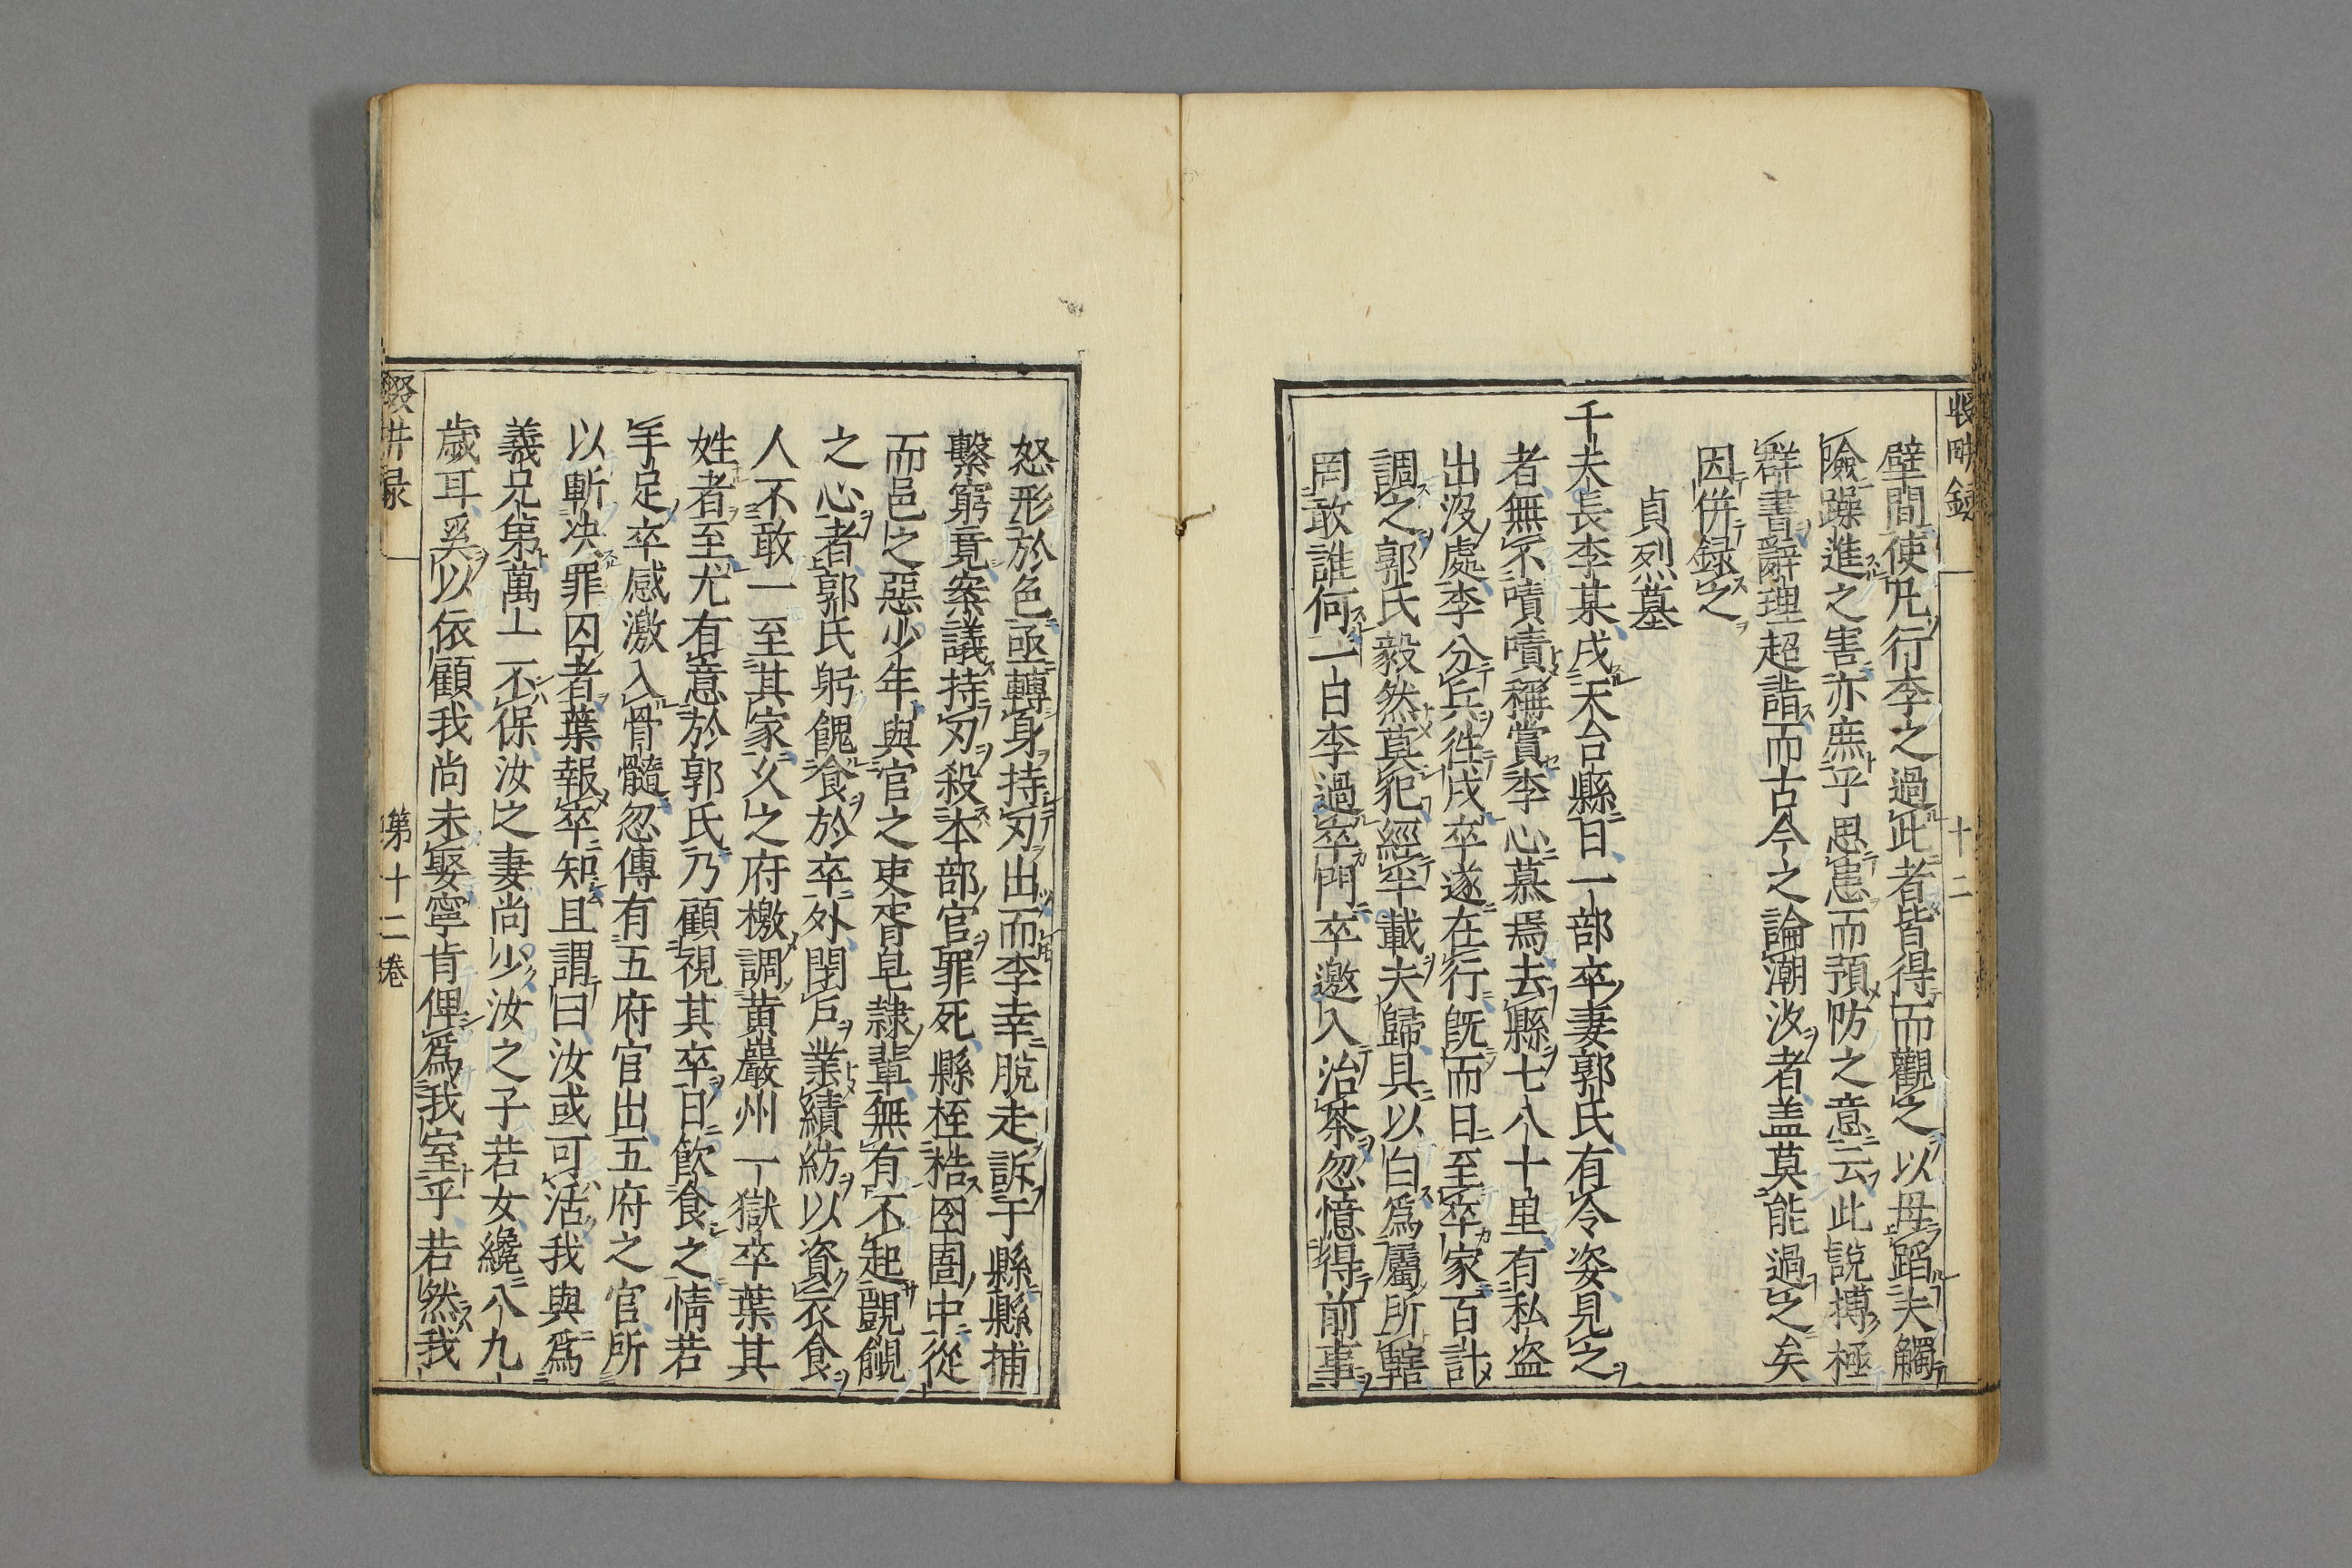 輟畊録
十二
壁間使凢行李之過此者皆得而觀之以毋蹈夫觸
險躁進之害亦庶乎思患而預防之意云此說搏極
群書辭理超詣而古今之論潮汐者盖莫能過之矣
因併録之
貞烈墓
千夫長李某戍天台縣日一部卒妻郭氏有令姿見之
者無不嘖嘖稱賞李心慕焉去縣七八十里有私盗
出沒處李分兵徃戍卒遂在行旣而日至卒家百計
調之郭氏毅然莫犯經半載夫歸具以白爲屬所轄
罔敢誰何一日李過卒門卒邀入治茶忽憶得前事
怒形於色亟轉身持刃出而李幸脫走訴于縣縣捕
繫窮竟案議持刃殺本部官罪死縣桎梏囹圄中從
而邑之惡少年與官之吏胥皂隸輩無有不起覬覦
之心者郭氏躬餽食於卒外閉戸業績紡以資衣食
人不敢一至其家乆之府檄調黄巖州一獄卒葉其
姓者至尤有意於郭氏乃顧視其卒日飮食之情若
手足卒感激入骨髓忽傳有五府官出五府之官所
以斬决罪囚者葉報卒知且謂曰汝或可活我與爲
義兄弟萬一不保汝之妻尚少汝之子若女纔八九
歲耳奚以依顧我尚未娶寧肯俾爲我室乎若然我
輟畊录
第十二卷